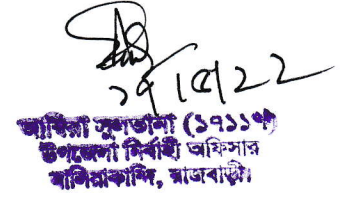 ২৭/০৫/২২
আম্বিয়া সুলতানা (১৭১১৭)
উপজেলা নির্বাহী অফিসার
বালিয়াকান্দি, রাজবাড়ী।